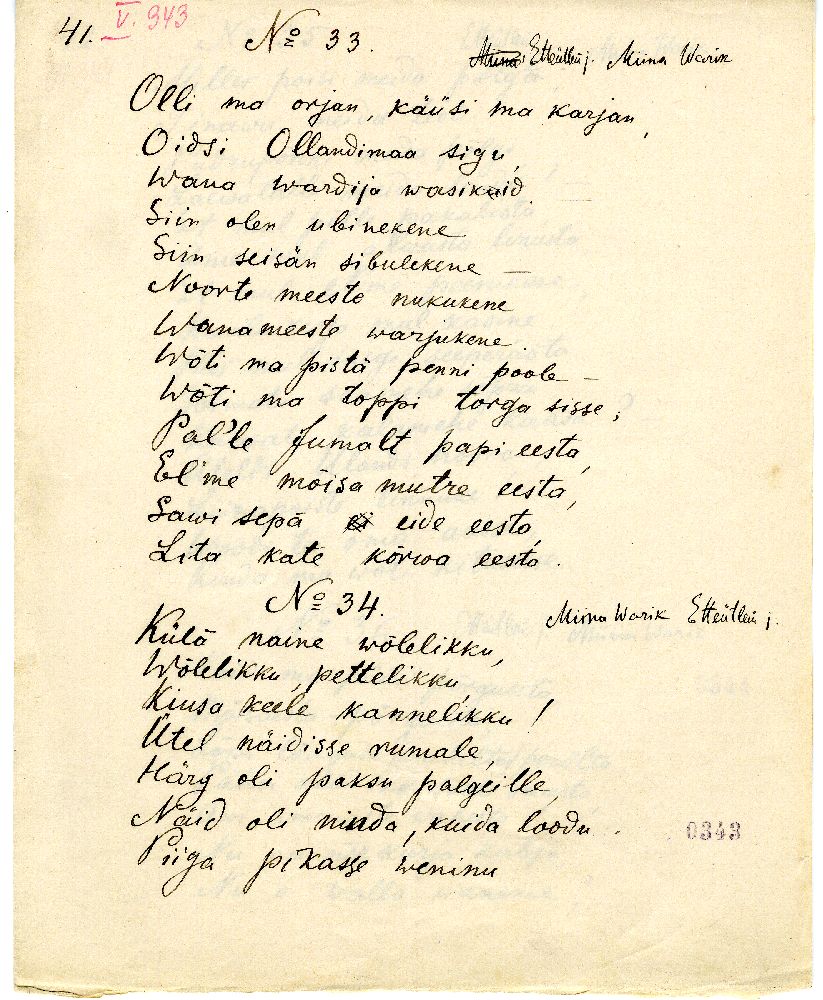 41. V. 343
№ 33.
Miina Etteütleja j. Miina Warik
Olli ma orjan, käüsi ma karjan,
Oidsi Ollandimaa sigu,
Wana wardija wasikaid.
Siin olen ubinekene
Siin seisän sibulekene —
Noorte meeste nukukene
Wanameeste warjukene
Wõti ma pistä penni poole —
Wõti ma toppi torga sisse;
Pal'le Jumalt papi eesta,
El'me mõisa mutre eesta,
Sawi sepä eide eesta,
Lita kate kõrwa eesta.
№ 34.
Miina Warik Etteütleja j.
Külä naine wõlelikku,
Wõlelikku, pettelikku,
Kiusa keele kannelikku!
Ütel näidisse rumale,
Härg oli paksu palgeille,
Näid oli ninda, kuida loodu.
Piiga pikasse weninu
0343